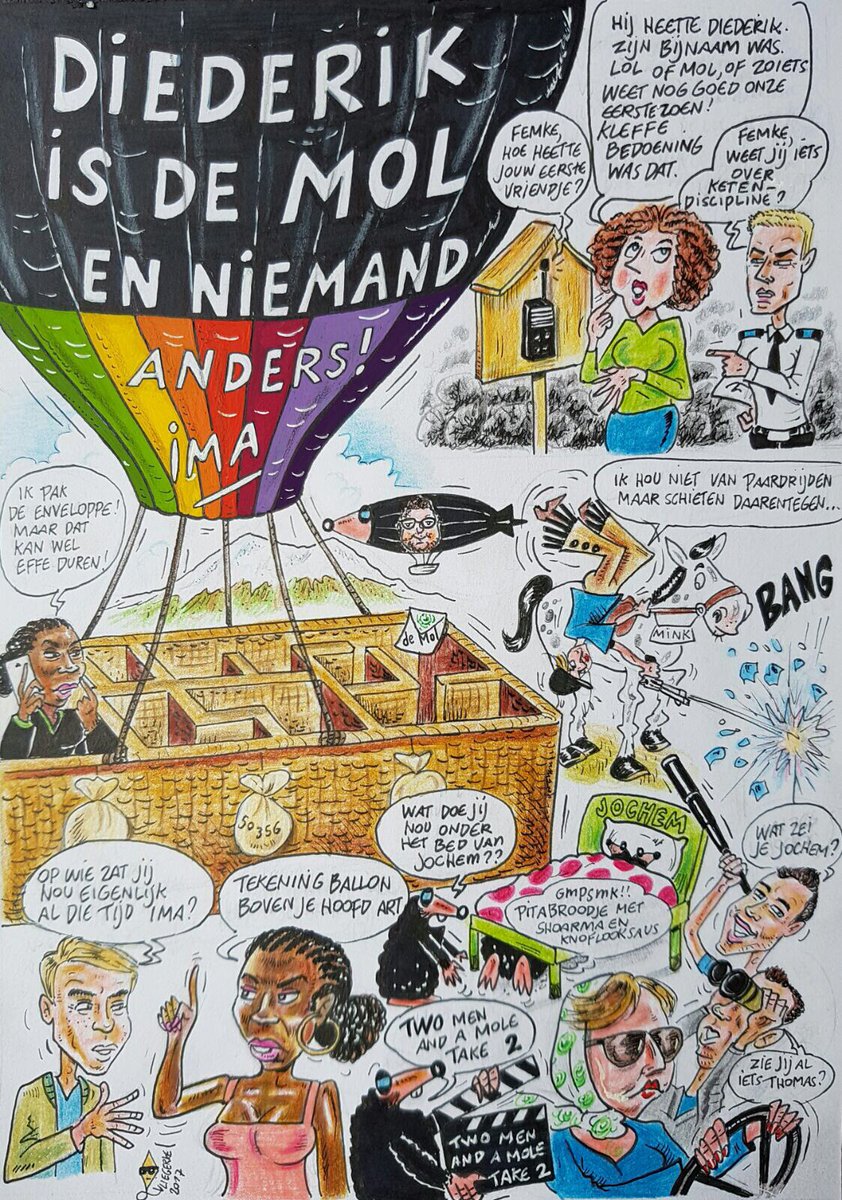 DIEDERIK
IS DE MOL
EN NIEMAND
ANDERS!
IMA
FEMKE,
HOE HEETTE
JOUW EERSTE
VRIENDJE?
HIJ HEETTE DIEDERIK.
ZIJN BIJNAAM WAS
LOL OF MOL, OF ZOIETS
WEET NOG GOED ONZE
EERSTE ZOEN!
KLEFFE
BEDOENING
WAS DAT.
FEMKE,
WEET JIJ IETS
OVER
KETEN-
DISCIPLINE?
IK PAK
DE ENVELOPPE!
MAAR DAT
KAN WEL
EFFE DUREN!
IK HOU NIET VAN PAARDRIJDEN
MAAR SCHIETEN DAARENTEGEN...
MINK
BANG
de Mol
50356
WAT DOE JIJ
NOU ONDER
HET BED VAN
JOCHEM??
JOCHEM
GMPSMK!!
PITABROODJE MET
SHOARMA EN
KNOFLOOKSAUS
WAT ZEI
JE JOCHEM?
OP WIE ZAT JIJ
NOU EIGENLIJK
AL DIE TIJD IMA?
TEKENING BALLON
BOVEN JE HOOFD ART
TWO MEN
AND A MOLE
TAKE 2
TWO MEN
AND A MOLE
TAKE 2
ZIE JIJ AL
IETS THOMAS?
VLIEGERKE
2017